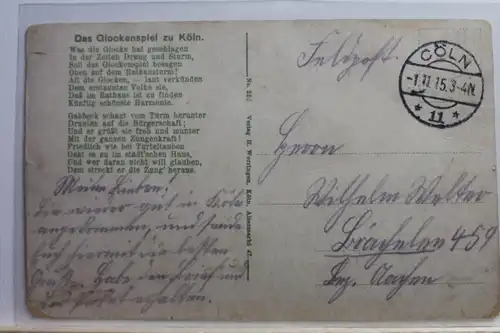 Das Glockenspiel zu Köln.
Was die Glocke hat geschlagen
In der Zeiten Drang und Sturm,
Soll das Glockenspiel besagen
Oben auf dem Rathausturm!
All die Glocken, — laut verkünden
Dem erstaunten Volke sie,
Daß im Rathaus ist zu finden
Künftig schönste Harmonie.
Gabbeck schaut vom Turm herunter
Draußen auf die Bürgerschaft;
Und er grüßt sie froh und munter
Mit der ganzen Zungenkraft!
Friedlich wie bei Turteltauben
Geht es zu im städt'schen Haus,
Und wer daran nicht will glauben,
Dem streckt er die Zung' heraus.
Meine Lieben!
Bin wieder gut in Köln
angekommen, und sende
Euch hiermit die besten
Grüße. Habe den
erhalten.
Verlag H. Worringen, Köln, Altenmarkt 47.
Feldpost.
CÖLN
-1.11.15.3-4N.
* 11 *
Herrn
Wilhelm Welter
Brachelen 459
Bez. Aachen